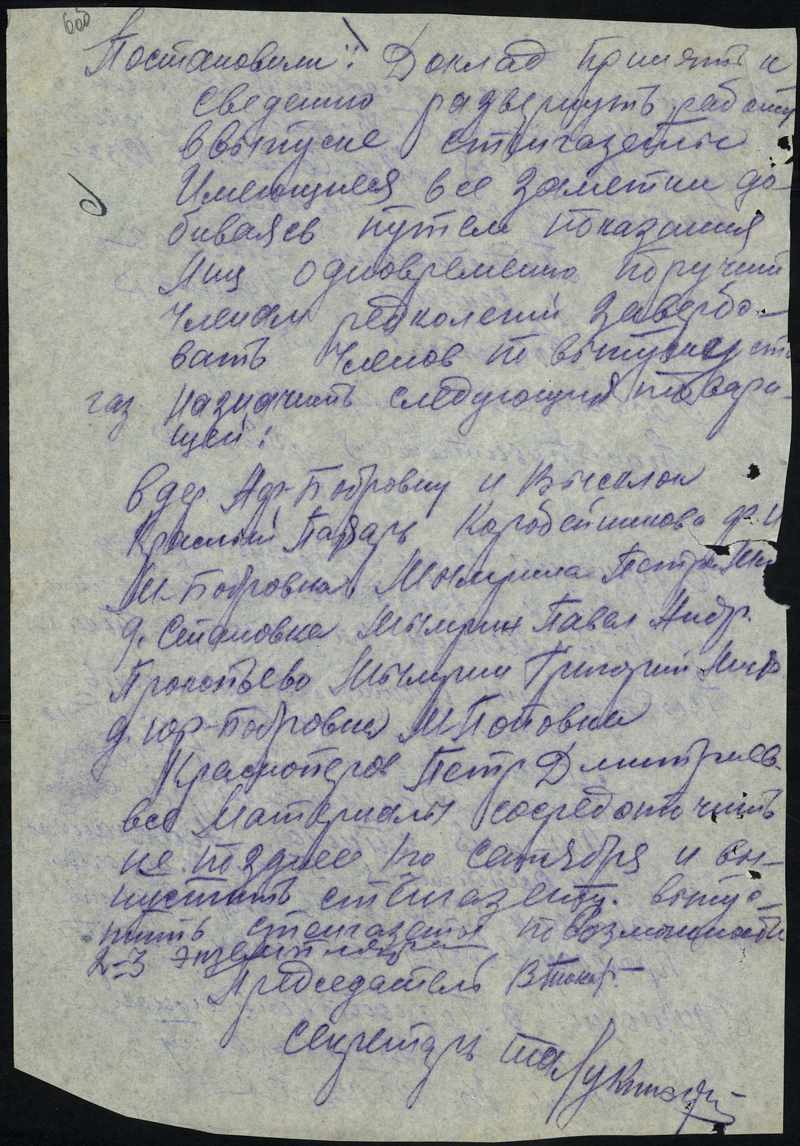 Постановили: Доклад принять к
сведению развернуть работу
ввыпуске стенгазеты
Имеющиеся все заметки до-
биваясь путем показания
лиц одновременно поручить
членам редколегии завербо-
вать членов по выпуску сте
газ назначить следующих товари-
щей:
в дер. Бобровку и Выселок
Красный Пахарь Коробейникова Ф. И
М. Бобровка Мымрина Петра Ми
д. Степановка Мымрин Павел Андр.
Прокопьево Мымрин Григорий Мих
Бобровка М Поповка
Красноперов Петр Дмитриев.
все материалы сосредоточить
не позднее 1го сентября и вы-
пустить стенгазету. выпус-
тить стенгазеты по возможности
2-3 экземпляра
Председатель
Секретарь